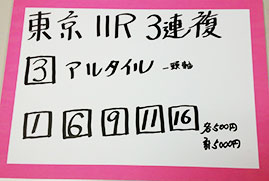 東京 11R 3連複
3 アルタイル 一頭軸
1 6 9 11 16 各500円
計5000円